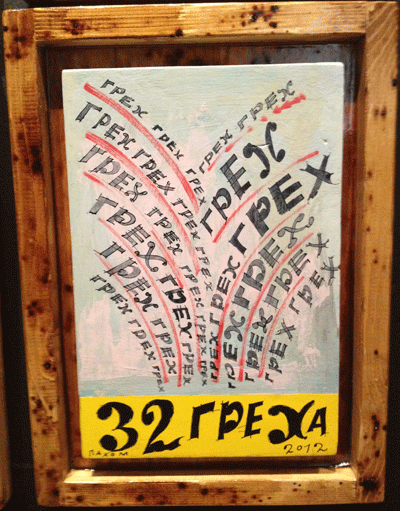 ГРЕХ ГРЕХ ГРЕХ
ГРЕХ ГРЕХ ГРЕХ ГРЕХ
ГРЕХ ГРЕХ ГРЕХ ГРЕХ
ГРЕХ ГРЕХ ГРЕХ ГРЕХ
ГРЕХ ГРЕХ ГРЕХ
ГРЕХ ГРЕХ ГРЕХ
ГРЕХ ГРЕХ
ГРЕХ
ГРЕХ ГРЕХ ГРЕХ
ГРЕХ ГРЕХ
ГРЕХ ГРЕХ
ГРЕХ ГРЕХ
32 ГРЕХА
ПАХОМ 2012